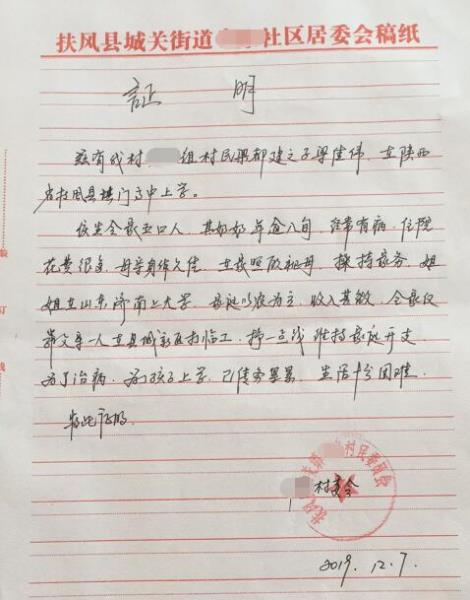 扶风县城关街道 社区居委会稿纸
证 明
兹有我村 组村民梁都建之子梁佳伟，在陕西
省扶风县法门高中上学。
该生全家五口人，其奶奶年愈八旬，经常有病，住院
花费很多，母亲身体欠佳，在家照顾祖母，操持家务，姐
姐在山东济南上大学，家庭以农为主，收入甚微，全家仅
靠父亲一人在县城新区打临工，挣一点钱维持家庭开支
为了治病，为了孩子上学，已债务累累，生活十分困难
特此证明
村委会
村民委员会
2019. 12. 7.